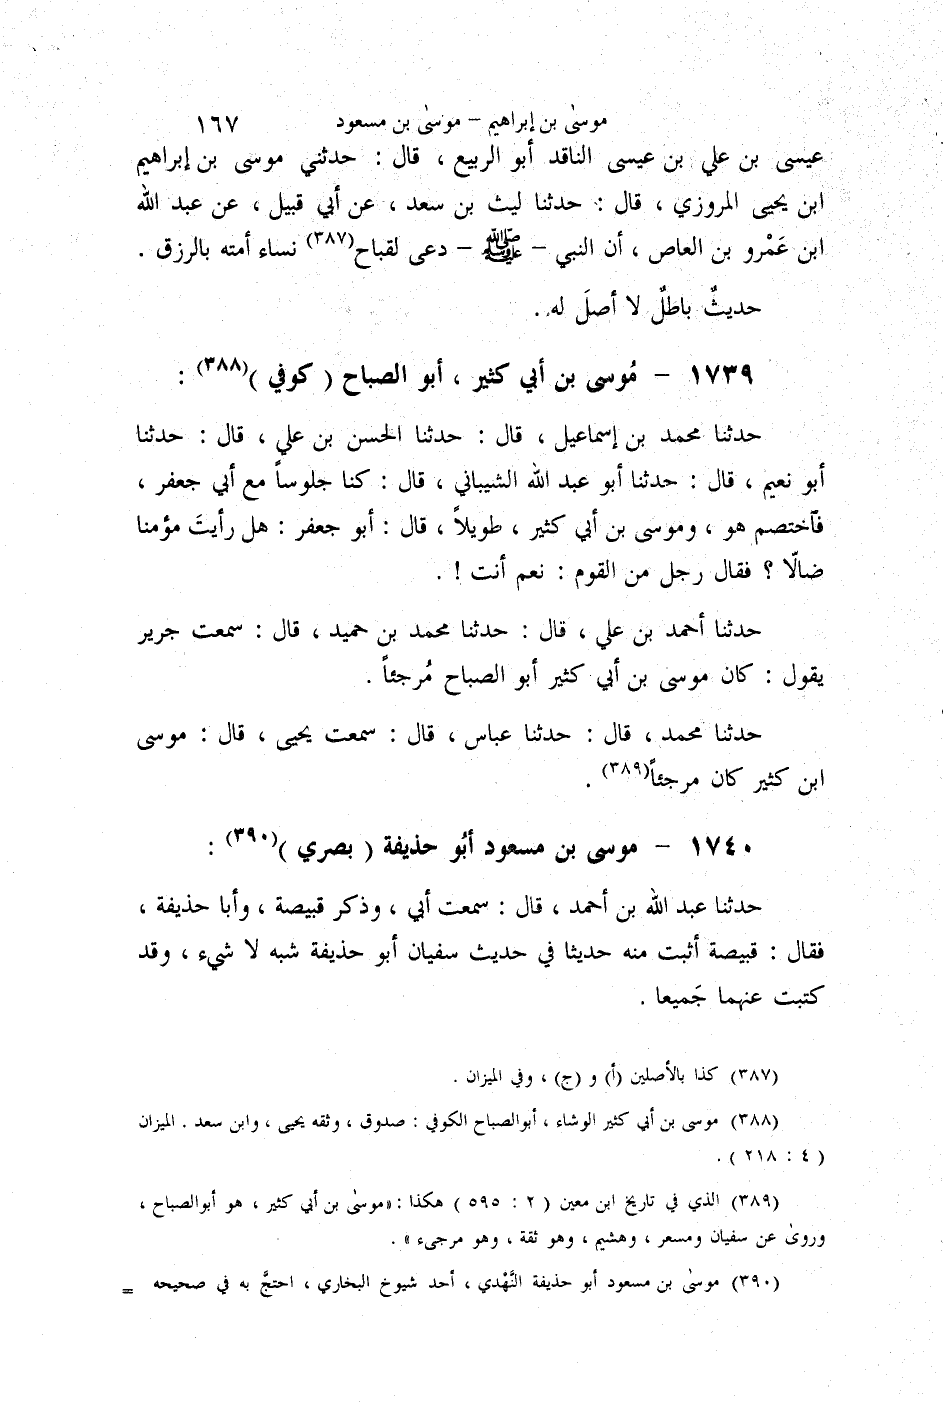 موسىٰ بن إبراهيم – موسىٰ بن مسعود ١٦٧
عيسى بن علي بن عيسى الناقد أبو الربيع ، قال : حدثني موسى بن إبراهيم
ابن يحيى المروزي ، قال : حدثنا ليث بن سعد ، عن أبي قبيل ، عن عبد الله
ابن عَمْرو بن العاص ، أن النبي – ﷺ – دعى لقباح(٣٨٧) نساء أمته بالرزق .
حديثٌ باطلٌ لا أصلَ له .
١٧٣٩ – مُوسى بن أبي كثير ، أبو الصباح ( كوفي )(٣٨٨) :
حدثنا محمد بن إسماعيل ، قال : حدثنا الحسن بن علي ، قال : حدثنا
أبو نعيم ، قال : حدثنا أبو عبد الله الشيباني ، قال : كنا جلوساً مع أبي جعفر ،
فآختصم هو ، وموسى بن أبي كثير ، طويلاً ، قال : أبو جعفر : هل رأيتَ مؤمنا
ضالّا ؟ فقال رجل من القوم : نعم أنت ! .
حدثنا أحمد بن علي ، قال : حدثنا محمد بن حميد ، قال : سمعت جرير
يقول : كان موسى بن أبي كثير أبو الصباح مُرجئاً .
حدثنا محمد ، قال : حدثنا عباس ، قال : سمعت يحيى ، قال : موسى
ابن كثير كان مرجئاً(٣٨٩) .
١٧٤٠ – موسى بن مسعود أبُو حذيفة ( بصري )(٣٩٠) :
حدثنا عبد الله بن أحمد ، قال : سمعت أبي ، وذكر قبيصة ، وأبا حذيفة ،
فقال : قبيصة أثبت منه حديثا في حديث سفيان أبو حذيفة شبه لا شيء ، وقد
كتبت عنهما جَميعا .
(٣٨٧) كذا بالأصلين (أ) و (ج) ، وفي الميزان .
(٣٨٨) موسى بن أبي كثير الوشاء ، أبوالصباح الكوفي : صدوق ، وثقه يحيى ، وابن سعد . الميزان
( ٤ : ٢١٨ ) .
(٣٨٩) الذي في تاريخ ابن معين ( ٢ : ٥٩٥ ) هكذا : «موسىٰ بن أبي كثير ، هو أبوالصباح ،
وروىٰ عن سفيان ومسعر ، وهشيم ، وهو ثقة ، وهو مرجىء » .
(٣٩٠) موسىٰ بن مسعود أبو حذيفة النَّهْدي ، أحد شيوخ البخاري ، احتجَّ به في صحيحه =